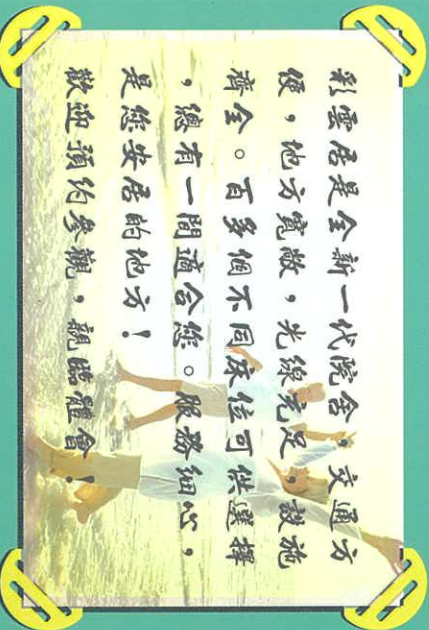 彩雲居是全新一代院舍，交通方
便，地方寬敞，光線充足，設施
齊全。百多個不同床位可供選擇
，總有一間適合您。服務細心，
是您安居的地方！
歡迎預約參觀，親臨體會！